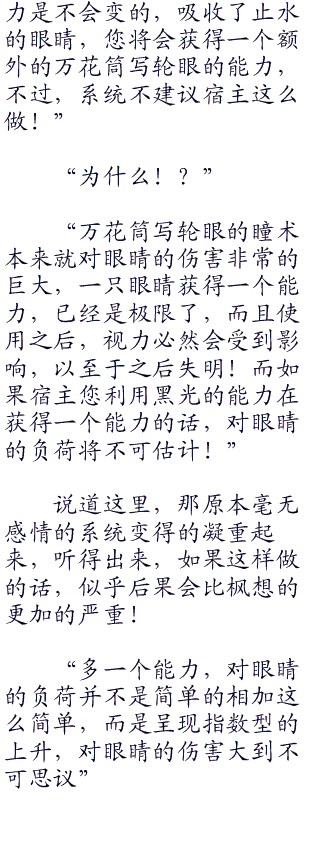 力是不会变的，吸收了止水
的眼睛，您将会获得一个额
外的万花筒写轮眼的能力，
不过，系统不建议宿主这么
做！”
“为什么！？”
“万花筒写轮眼的瞳术
本来就对眼睛的伤害非常的
巨大，一只眼睛获得一个能
力，已经是极限了，而且使
用之后，视力必然会受到影
响，以至于之后失明！而如
果宿主您利用黑光的能力在
获得一个能力的话，对眼睛
的负荷将不可估计！”
说道这里，那原本毫无
感情的系统变得的凝重起
来，听得出来，如果这样做
的话，似乎后果会比枫想的
更加的严重！
“多一个能力，对眼睛
的负荷并不是简单的相加这
么简单，而是呈现指数型的
上升，对眼睛的伤害大到不
可思议”